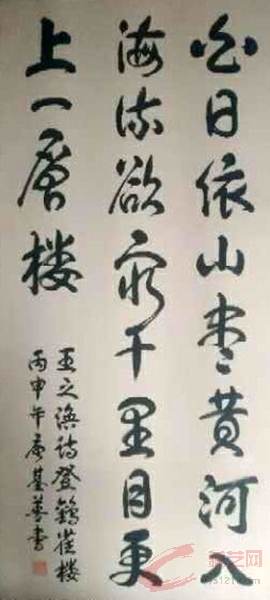 白日依山盡黄河入
海流欲窮千里目更
上一層楼
王之涣诗登鹳雀楼
丙申年基书